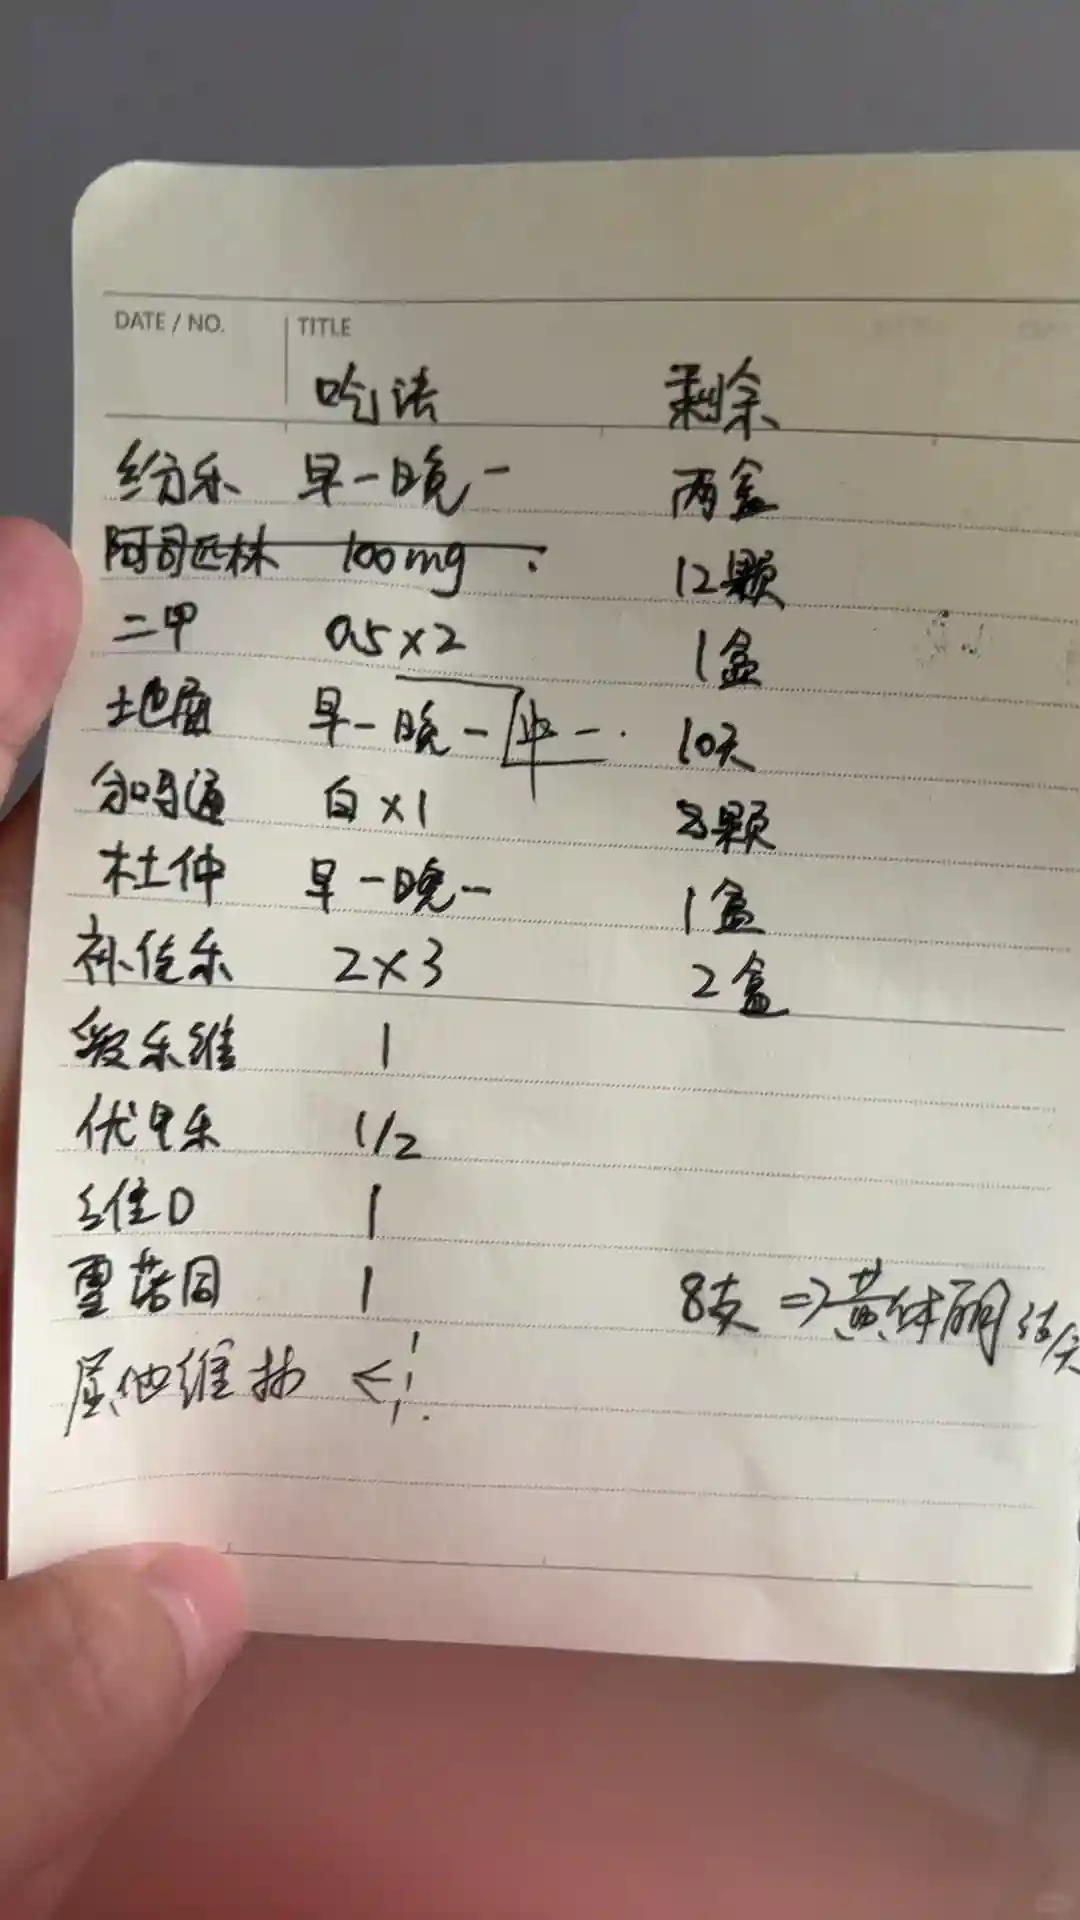 DATE / NO. TITLE
吃法 剩余
纷乐 早一晚一 两盒
阿司匹林 100mg 12颗
二甲 0.5×2 1盒
土地屈 早一晚一 中一. 10天
分吗通 白×1 8颗
杜仲 早一晚一 1盒
补佳乐 2×3 2盒
爱乐维 1
优甲乐 1/2
维D 1
雪诺同 1 8支 => 黄体酮